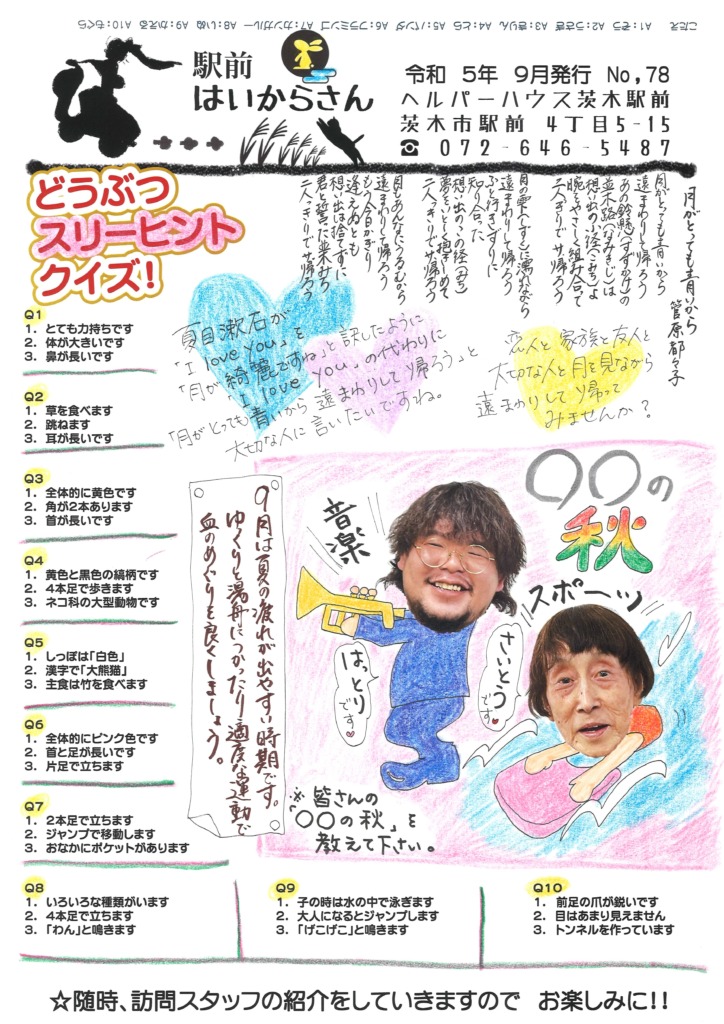 こたえ A1：ぞう A2：うさぎ A3：きりん A4：とら A5：パンダ A6：フラミンゴ A7：カンガルー A8：いぬ A9：かえる A10：もぐら
駅前
はいからさん
令和 5年 9月発行 No,78
ヘルパーハウス茨木駅前
茨木市駅前 4丁目5-15
☎ 072-646-5487
どうぶつ
スリーヒント
クイズ！
月がとっても青いから
菅原都々子
月がとっても青いから
遠まわりして帰ろう
あの鈴懸(すずかけ)の
並木路(なみきじ)は
想い出の小径(こみち)よ
腕をやさしく組み合って
二人っきりでサ帰ろう
月の雫(しずく)に濡れながら
遠まわりして帰ろう
ふと行きずりに
知り合った
想い出のこの径(みち)
夢をいとしく抱きしめて
二人っきりでサ帰ろう
月もあんなにうるむから
遠まわりして帰ろう
もう今日かぎり
逢えぬとも
想い出は捨てずに
君と誓った並木みち
二人っきりでサ帰ろう
夏目漱石が
「I love you」を
「月が綺麗ですね」と訳したように
「I love you」の代わりに
「月がとっても青いから遠まわりして帰ろう」と
大切な人に言いたいですね。
恋人と家族と友人と
大切な人と月を見ながら
遠まわりして帰って
みませんか？
Q1
1. とても力持ちです
2. 体が大きいです
3. 鼻が長いです
Q2
1. 草を食べます
2. 跳ねます
3. 耳が長いです
Q3
1. 全体的に黄色です
2. 角が2本あります
3. 首が長いです
Q4
1. 黄色と黒色の縞柄です
2. 4本足で歩きます
3. ネコ科の大型動物です
Q5
1. しっぽは「白色」
2. 漢字で「大熊猫」
3. 主食は竹を食べます
Q6
1. 全体的にピンク色です
2. 首と足が長いです
3. 片足で立ちます
Q7
1. 2本足で立ちます
2. ジャンプで移動します
3. おなかにポケットがあります
9月は夏の疲れが出やすい時期です。
ゆっくりと湯舟につかったり適度な運動で
血のめぐりを良くしましょう。
〇〇の
秋
音楽
はっとりです♥
スポーツ
さいとうです♥
※皆さんの
「〇〇の秋」を
教えて下さい。
Q8
1. いろいろな種類がいます
2. 4本足で立ちます
3. 「わん」と鳴きます
Q9
1. 子の時は水の中で泳ぎます
2. 大人になるとジャンプします
3. 「げこげこ」と鳴きます
Q10
1. 前足の爪が鋭いです
2. 目はあまり見えません
3. トンネルを作っています
☆随時、訪問スタッフの紹介をしていきますので お楽しみに!!